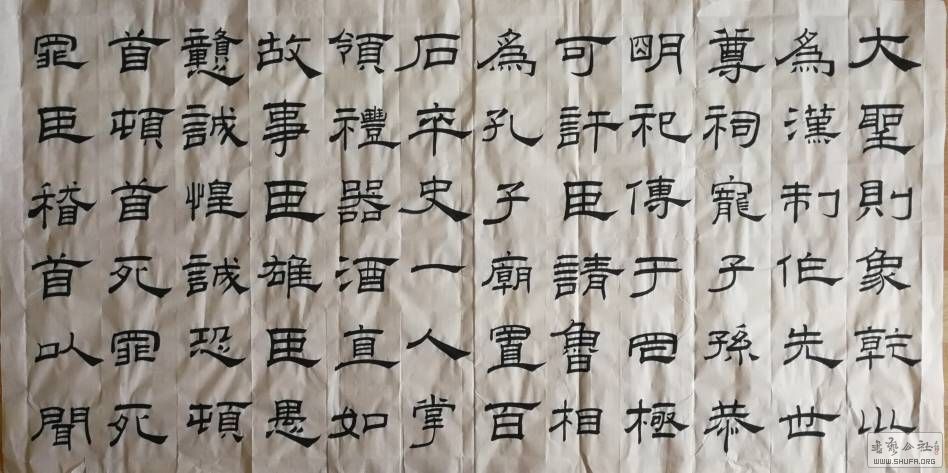 大聖則象乾巛
為漢制作先世
尊祠寵子孫恭
明祀傳于罔極
可許臣請魯相
為孔子廟置百
石卒史一人掌
領禮器酒直如
故事臣雄臣愚
戇誠惶誠恐頓
首頓首死罪死
罪臣稽首以聞
書藝公社
WWW.SHUFA.ORG